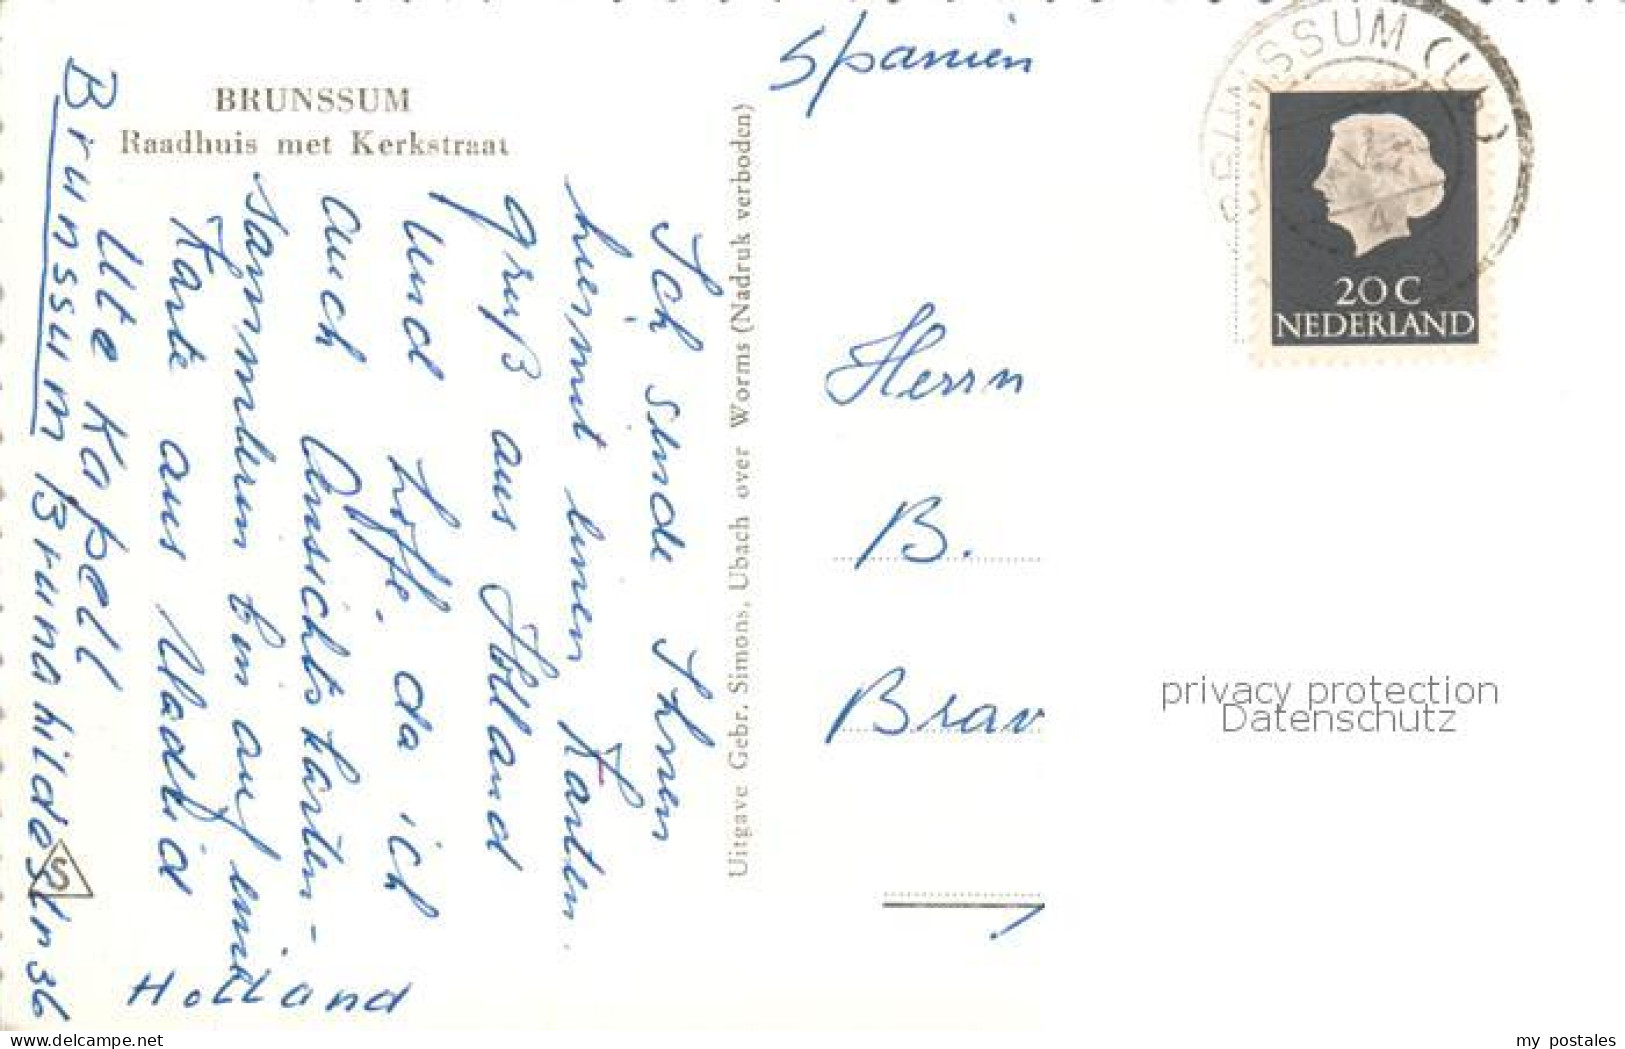 BRUNSSUM
Raadhuis met Kerkstraat
Ich sende Ihnen
hiermit einen Karten
gruß aus Holland
und hoffe, da ich
auch Ansichtskarten-
sammlerin bin auf eine
Karte aus Madrid
Ute Kapell
Brunssum Brunahildestr 36
Holland
S
Uitgave Gebr. Simons, Ubach over Worms (Nadruk verboden)
Spanien
BRUNSSUM (LB)
4
20 C
NEDERLAND
Herrn
B.
Brav
privacy protection
Datenschutz
delcampe.net
my_postales